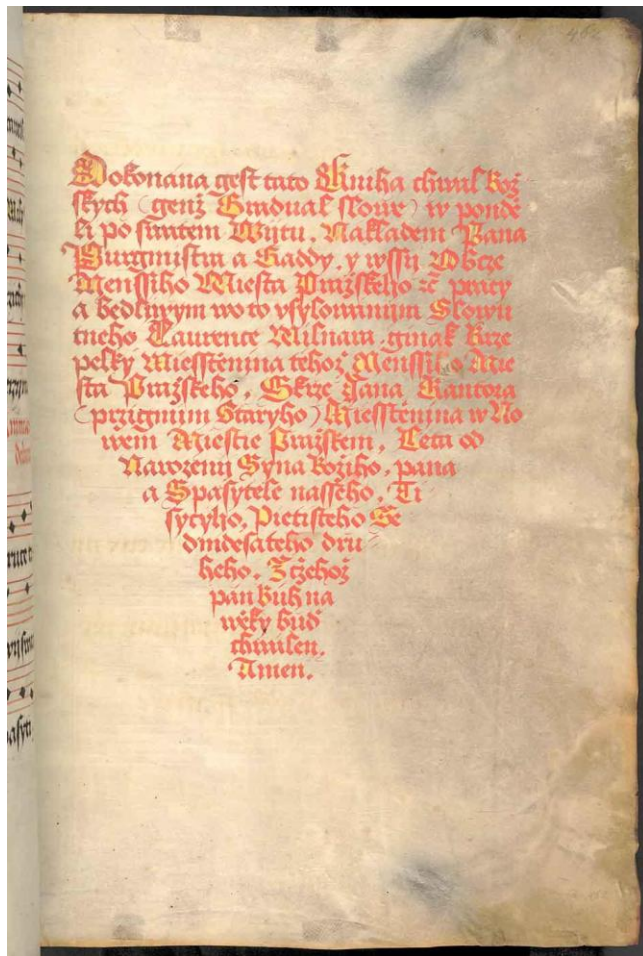 Dokonana gest tato Kniha chwal Bož
skych (genž Gradual slowe) w ponde
li po swatem Wijtu. Nakladem Pana
Purgmistra a Raddy, y wssij Obcze
Menssiho Miesta Pražskeho: pracy
a bedliwym wo to vsylowanijm Slowu
tneho Laurence Milnarz, ginak Krze
pelky Miesstěnina tehož Menssiho Mie
sta Pražskeho. Skrze Jana Kantora
(przigmim Staryho) Miesstěnina w No
wem Miestie Pražskem. Leta od
Narozenij Syna Božiho, pana
a Spasytele nasseho. Ti
sycyho, Pietisteho Se
dmdesateho dru
heho. Zčehož
pan Buh na
wěky bud
chwalen.
Amen.